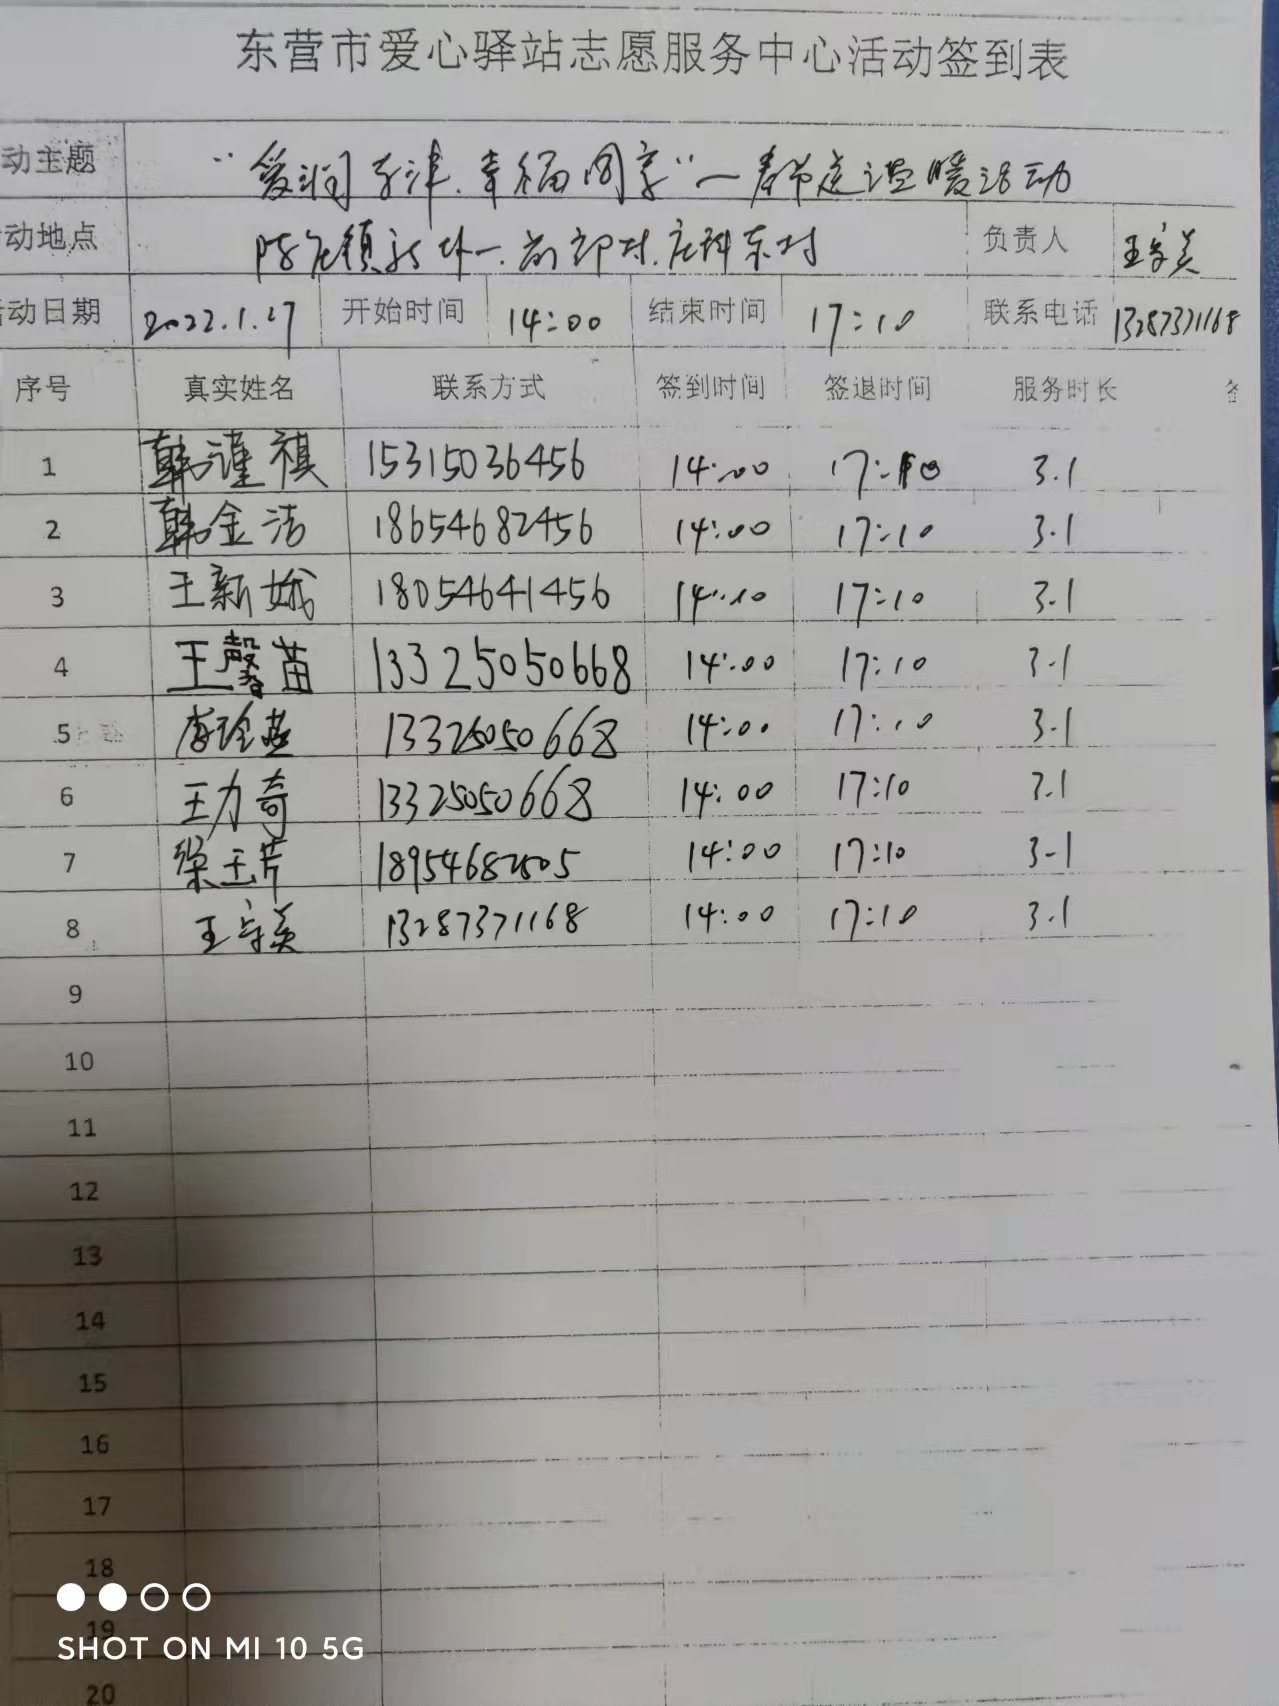 东营市爱心驿站志愿服务中心活动签到表
动主题 "爱润东津.幸福同享"—春节送温暖活动
动地点 陈庄镇 一.前郭村.庄科东村 负责人 王守美
动日期 2022.1.27 开始时间 14:00 结束时间 17:10 联系电话 13287371168
序号 真实姓名 联系方式 签到时间 签退时间 服务时长
1 韩谨祺 15315036456 14:00 17:10 3.1
2 韩金洁 18654682456 14:00 17:10 3.1
3 王新娥 18054641456 14:10 17:10 3.1
4 王馨苗 13325050668 14:00 17:10 3.1
5 李玲燕 13325050668 14:00 17:10 3.1
6 王力奇 13325050668 14:00 17:10 3.1
7 梁玉芹 18954682505 14:00 17:10 3-1
8 王守美 13287371168 14:00 17:10 3.1
9
10
11
12
13
14
15
16
17
18
19
SHOT ON MI 10 5G
20